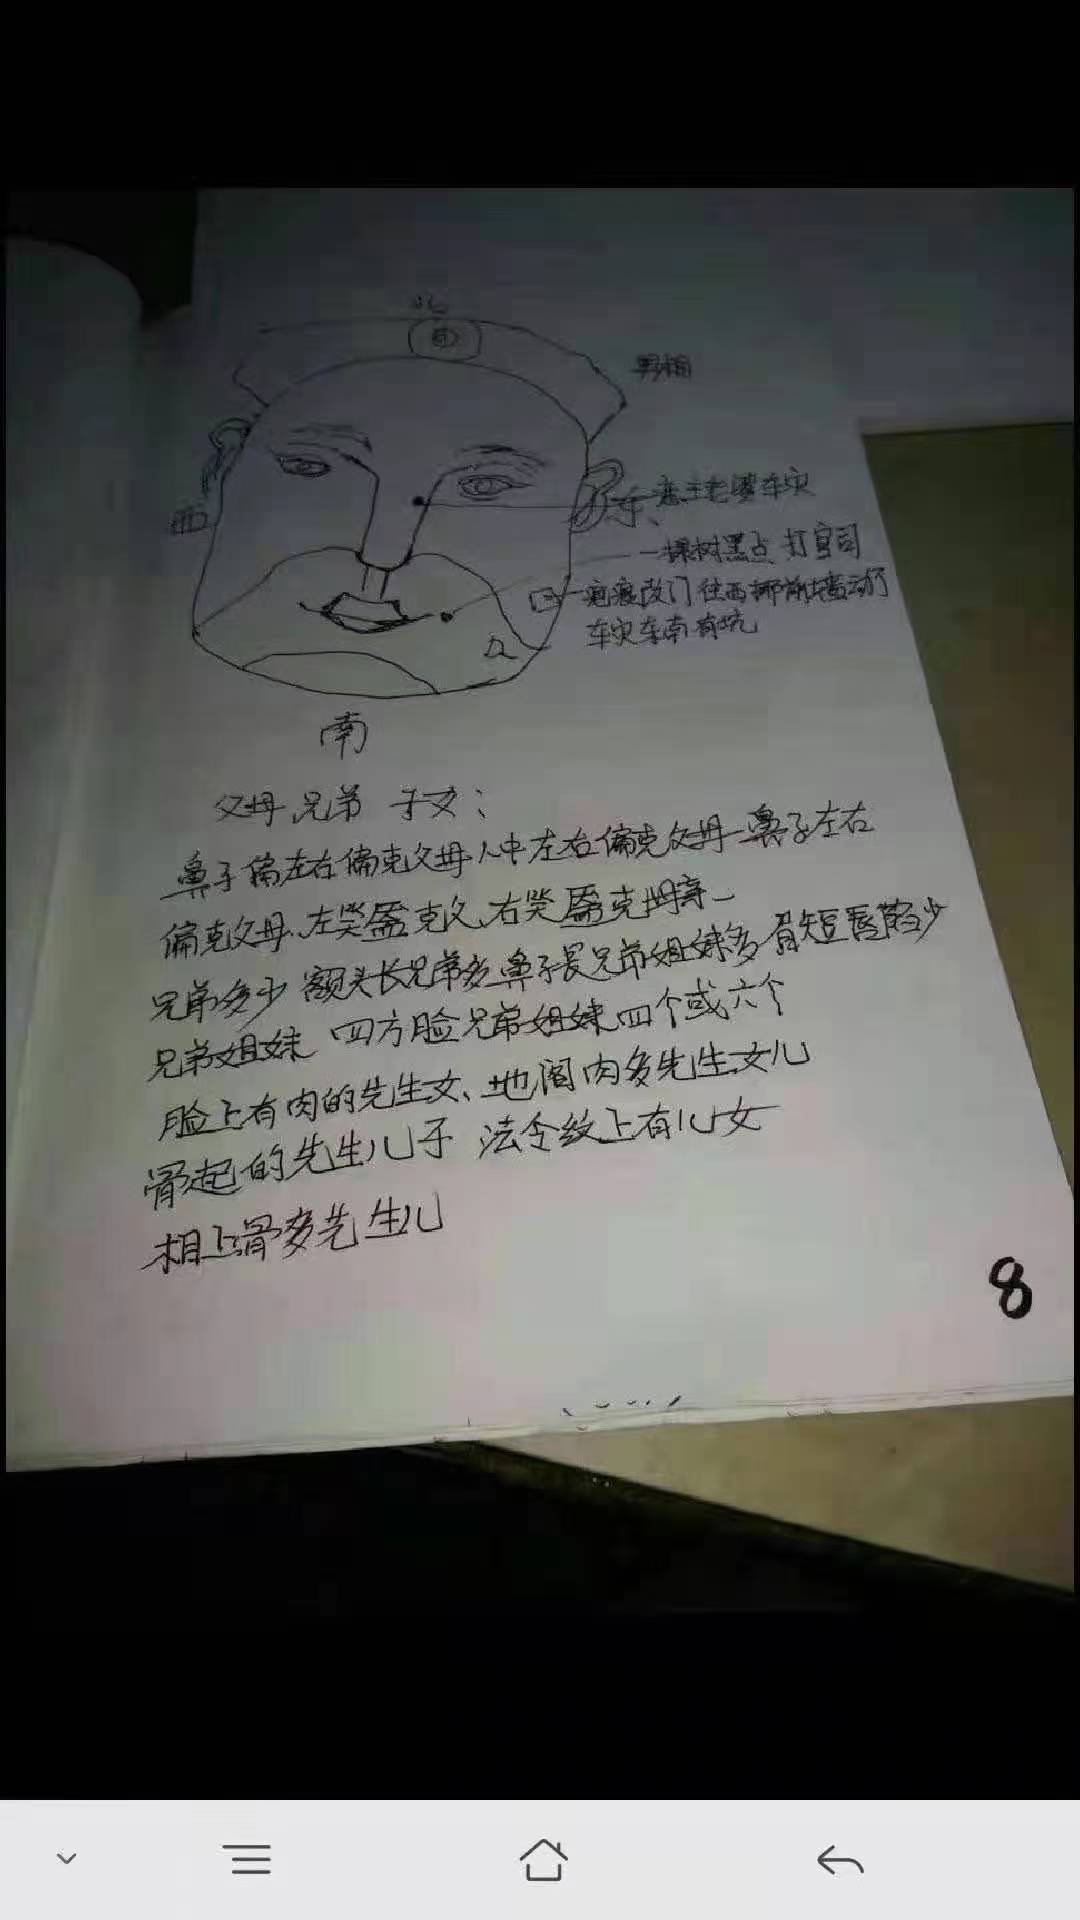 北
男相
西
东
痣主老婆车灾
一棵树黑点 打官司
疤痕改门往西挪前墙动了
车灾东南有坑
南
父母、兄弟 子女：
鼻子偏左右偏克父母人中左右偏克父母—鼻子左右
偏克父母、左笑靥克父、右笑靥克母亲—
兄弟多少 额头长兄弟多鼻子长兄弟姐妹多 唇短少
兄弟姐妹 四方脸兄弟姐妹四个或六个
脸上有肉的先生女、地阁肉多先生女儿
骨起的先生儿子 法令纹上有儿女
相上骨多先生儿
8